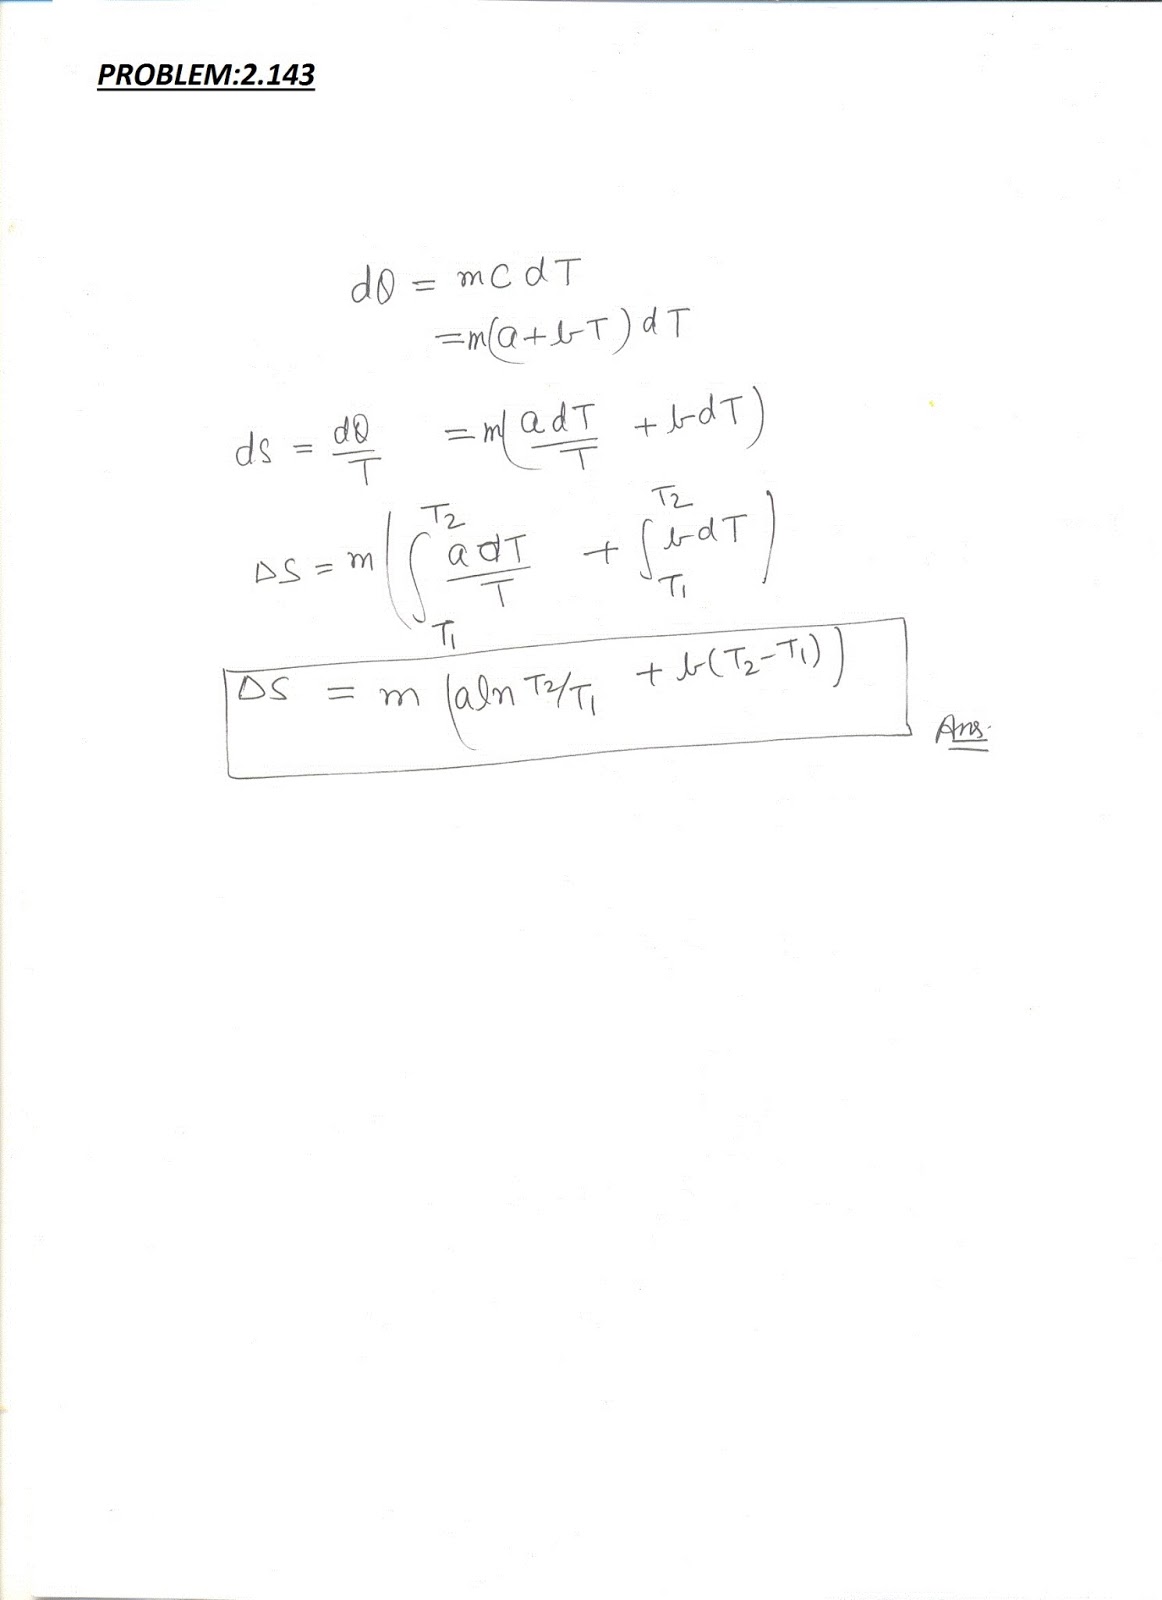 PROBLEM:2.143
dQ = mC dT
=m(a+bT)dT
dS = dQ/T = m(adT/T + bdT)
ΔS = m(∫_{T1}^{T2} adT/T + ∫_{T1}^{T2} bdT)
ΔS = m (aln T2/T1 + b(T2-T1))
Ans.